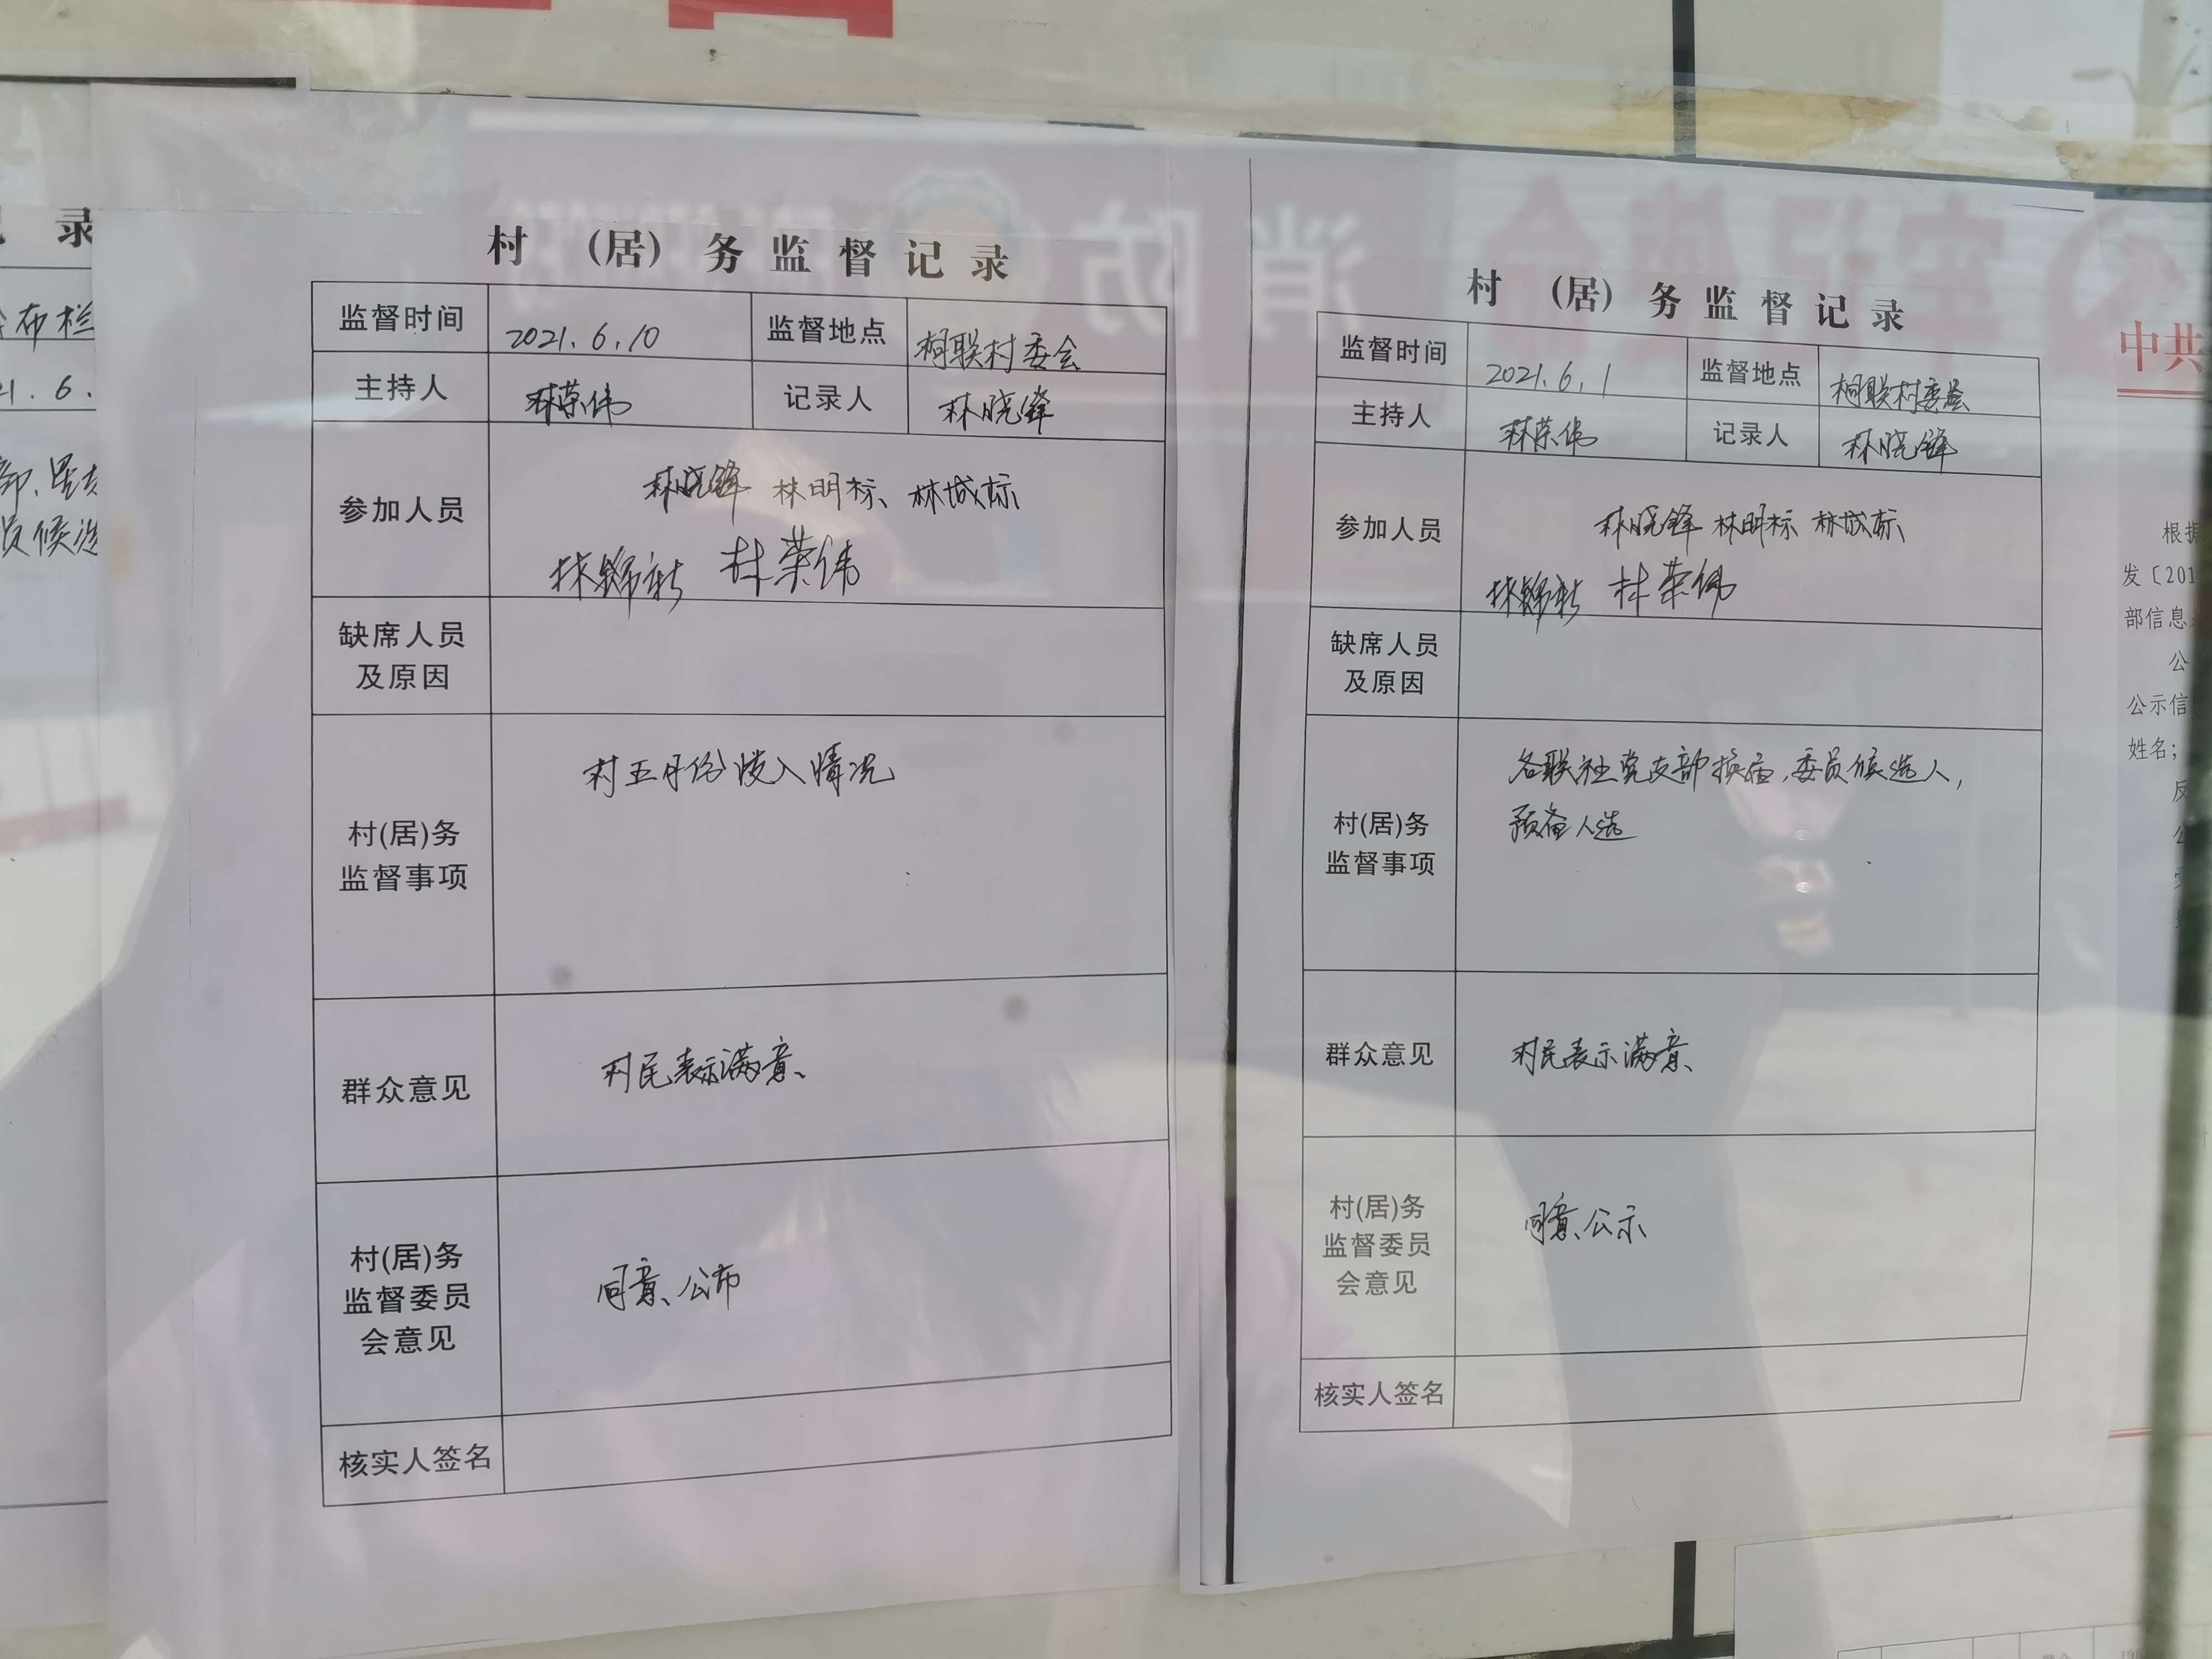 录
布栏
1.6.
部、
员候选
村 (居) 务监督记录
监督时间 2021.6.10 监督地点 桐联村委会
主持人 林荣伟 记录人 林晓锋
参加人员 林晓锋 林明标、林城标
林锦新 林荣伟
缺席人员
及原因
村五月份收入情况
村(居)务
监督事项
群众意见 村民表示满意、
村(居)务
监督委员
会意见
同意、公布
核实人签名
村 (居) 务监督记录
监督时间 2021.6.1 监督地点 桐联村委会
主持人 林荣伟 记录人 林晓锋
参加人员 林晓锋 林明标 林城标
林锦新 林荣伟
缺席人员
及原因
各联社党支部换届、委员候选人,
预备人选
村(居)务
监督事项
群众意见 村民表示满意、
村(居)务
监督委员
会意见
同意、公示
核实人签名
中共
根据
发〔201
部信息
公
公示信
姓名;
消防